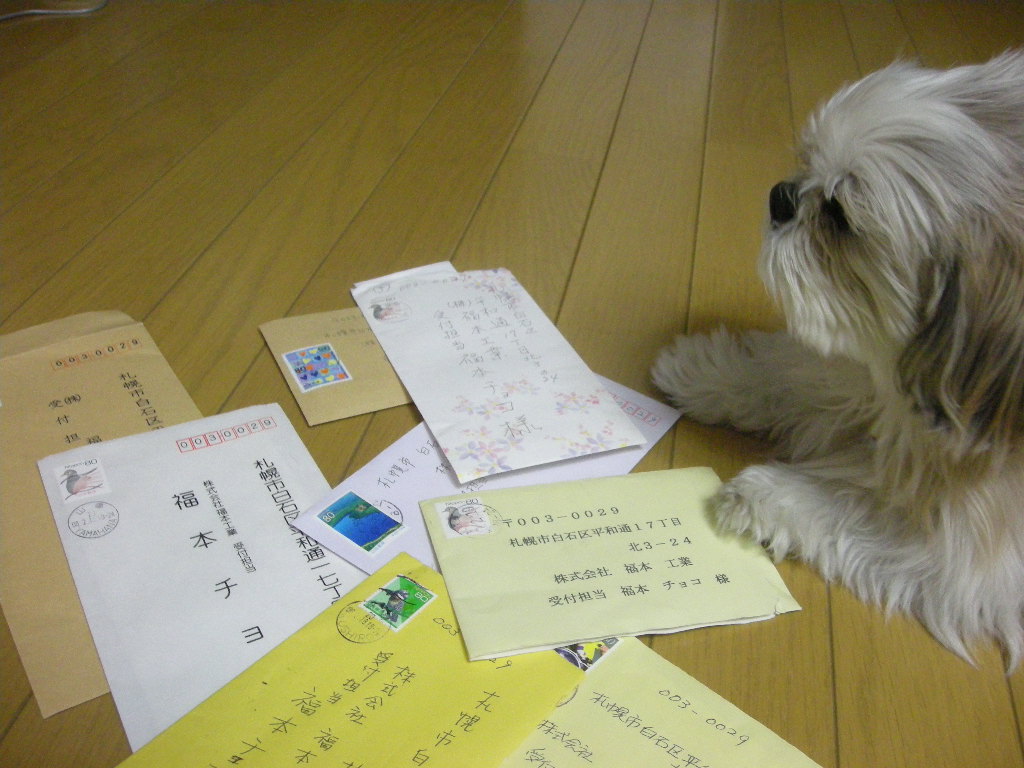 0030029
札幌市白石区
(株)
受付担
福
0030029
札幌市白石区
和通一七丁
株式会社福本工業 受付担当
福本チョ
80
80
80
003-0029
平和通17丁目
(株)福本工業
受付担当 福本チョコ様
80
札幌市 白
〒003-0029
札幌市白石区平和通17丁目
北3-24
株式会社 福本 工業
受付担当 福本 チョコ 様
80
003
札幌市白
株式会社 福本
受付担当 福本チョ
003-0029
札幌市白石区平
株式会社
受付